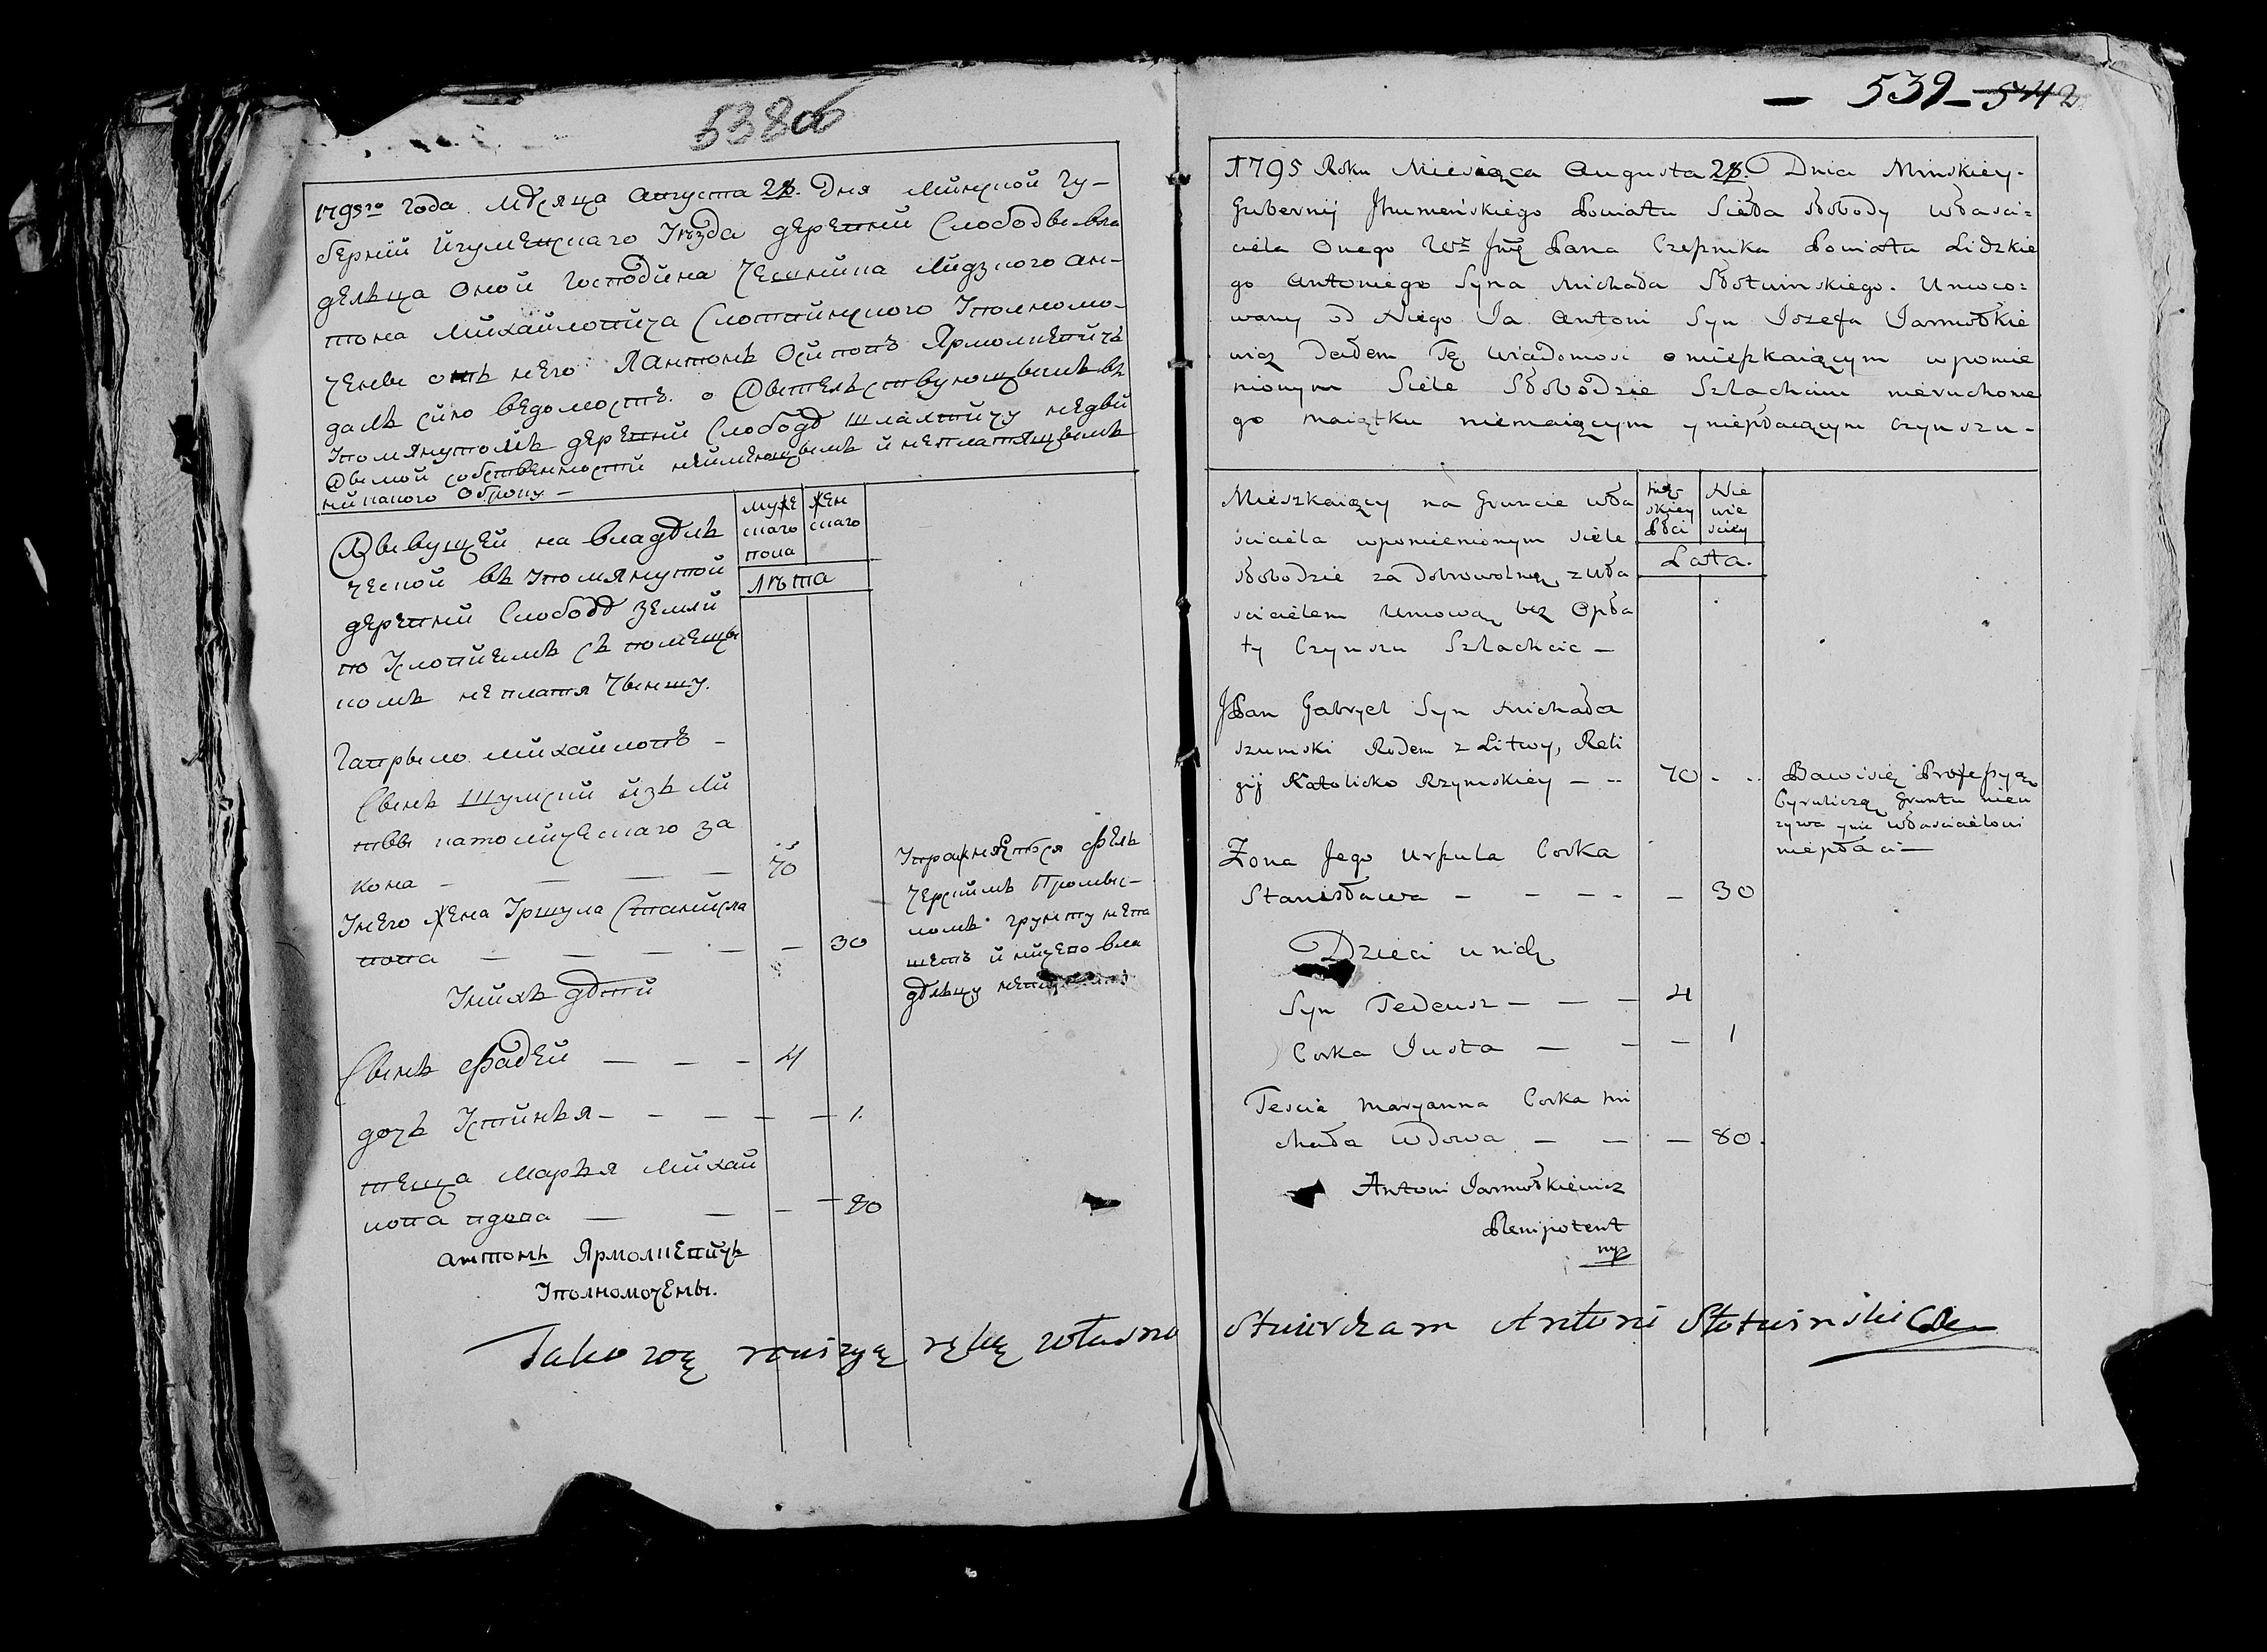 538об
1795го Года Мѣсяца Августа 28. Дня Минской Гу-
берніи Игуменскаго Уезда деревни Слободы вла
делъца оной Господина Чешника Лидзкого Ан-
тона Михайловича Слотвинского Уполномо-
чены отъ него Я Антонъ Осиповъ Ярмолкевичъ
далъ сию ведомостъ о жителъствующыхъ въ
Упомянутой деревни Слободѣ шляхтичу недви
жымой собственности неимеющымъ и неплатящымъ
никакого оброку –
Жывущей на владѣль
ческой въ Упомянутой
деревни Слободѣ земли
по Условиемъ съ помещы
комъ не платя Чыншу.
муже
скаго
пола
жен
скаго
лѣта
Гаврыло Михайловъ –
Сынъ Шумский изъ Ли
твы католическаго за
кона – – – – 70
У него жена Уршула Станисла
вова – – – – – 30
Управляется фель
черскимъ Промыс-
ломъ грунту непа
шетъ и ничего вла
дѣльцу
У нихъ дѣтей
Сынъ Фадей – – – 4
дочь Устинья – – – – – 1.
теща Марья Михай
лова вдова – – – – 80
Антонъ Ярмолкевичъ
Уполномочены.
– 539 – 542
1795 Roku Miesiąca Augusta 28. Dnia Minskiey-
Gubernij Jhumeńskiego Powiatu Sieła Słobody Własci=
ciela Onego Wº Jmę Pana Czesznika Powiatu Lidzkie
go Antoniego Syna Michała Słotwinskiego. Umoco=
wany od Niego Ja Antoni Syn Jozefa Jarmołkie
wicz Dałem Tę wiadomosc o mieszkaiącym w pomie
nionym Siele Słobodzie Szlachcicu nieruchome
go maiątku niemaiącym y niepłacącym Czynszu –
Mieszkaiący na Gruncie wła
sciciela wpomienionym siele
słobodzie za Dobrowolną z Wła
scicielem Umową bez Opła
ty Czynszu Szlachcic –
męz-
skiey
Płci
Nie
wie
sciey
Lata.
JPan Gabryel Syn Michała
Szumski Rodem z Litwy, Reli
gij Katolicko Rzymskiey – – 70 – –
Bawi się Professyą
Cyruliczą Gruntu nieu
zywa y nic Własciciełowi
niepłaci –
Zona Jego Urszula Corka
Stanisława – – – – – 30
Dzieci u nich
Syn Tedeusz – – – 4
Corka Justa – – – 1
Tescia Maryanna Corka Mi
chała Wdowa – – – 80.
Antoni Jarmołkiewicz
Plenipotent
mp
Takowę rewizyę ręką własno stwierdzam Antoni Słotwinski